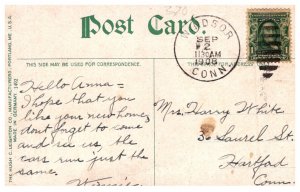 Post Card
WINDSOR
SEP
2
1130AM
1908
CONN.
THIS SIDE MAY BE USED FOR CORRESPONDENCE.
THIS SIDE IS FOR THE ADDRESS.
THE HUGH C. LEIGHTON CO., MANUFACTURERS, PORTLAND, ME., U.S.A.
MADE IN GERMANY
Hello Anna =
I hope that you
like your new home,
dont forget to come
and see us the
cars run just the
same.
Mrs. Harry White
30 Laurel St.
Hartford
Conn.